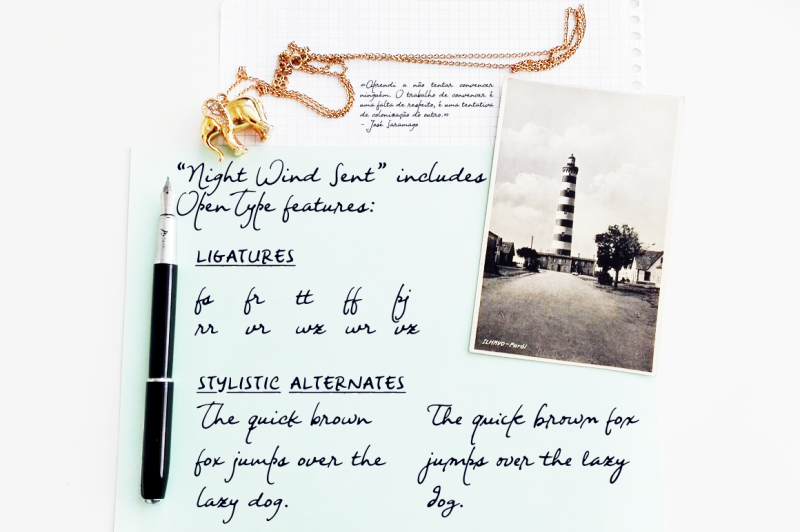 «Aprendi a não tentar convencer
ninguém. O trabalho de convencer é
uma falta de respeito, é uma tentativa
de colonização do outro.»
- José Saramago
“Night Wind Sent” includes
OpenType features:
LIGATURES
fs fr tt ff fj
rr vr wz wr vz
STYLISTIC ALTERNATES
The quick brown
fox jumps over the
lazy dog.
The quick brown fox
jumps over the lazy
dog.
ILHAVO-Farol